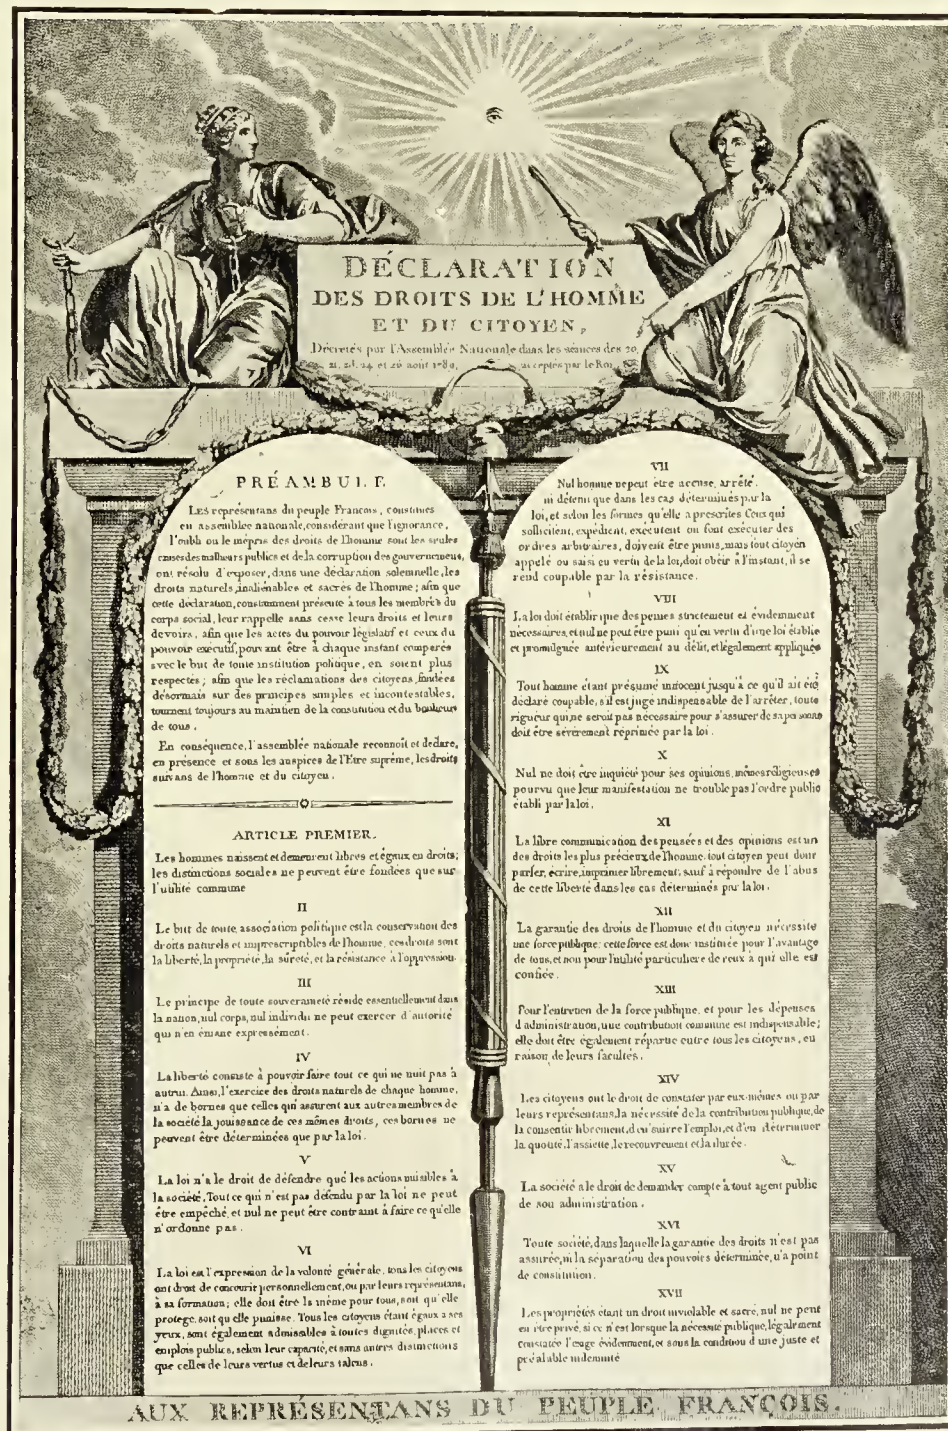 DÉCLARATION
DES DROITS DE L'HOMME
ET DU CITOYEN,
Décretés par l'Assemblée Nationale dans les séances des 20,
21, 23, 24 et 26 août 1789, acceptés par le Roi
PRÉAMBULE
LES représentans du peuple Francois, constitués
en assemblée nationale, considérant que l'ignorance,
l'oubli ou le mépris des droits de l'homme sont les seules
causes des malheurs publics et de la corruption des gouvernemens,
ont résolu d'exposer, dans une déclaration solemnelle, les
droits naturels, inaliénables et sacrés de l'homme; afin que
cette déclaration, constamment présente à tous les membres du
corps social, leur rappelle sans cesse leurs droits et leurs
devoirs, afin que les actes du pouvoir législatif et ceux du
pouvoir exécutif, pouvant être à chaque instant comparés
avec le but de toute institution politique, en soient plus
respectés; afin que les réclamations des citoyens, fondées
désormais sur des principes simples et incontestables,
tournent toujours au maintien de la constitution et du bonheur
de tous.
En conséquence, l'assemblée nationale reconnoit et declare,
en présence et sous les auspices de l'Etre suprême, les droits
suivans de l'homme et du citoyen.
ARTICLE PREMIER.
Les hommes naissent et demeurent libres et égaux en droits;
les distinctions sociales ne peuvent être fondées que sur
l'utilité commune
II
Le but de toute association politique est la conservation des
droits naturels et imprescriptibles de l'homme, ces droits sont
la liberté, la propriété, la sûreté, et la résistance à l'oppression.
III
Le principe de toute souveraineté réside essentiellement dans
la nation, nul corps, nul individu ne peut exercer d'autorité
qui n'en émane expressément.
IV
La liberté consiste à pouvoir faire tout ce qui ne nuit pas à
autrui. Ainsi, l'exercice des droits naturels de chaque homme,
n'a de bornes que celles qui assurent aux autres membres de
la société la jouissance de ces mêmes droits, ces bornes ne
peuvent être déterminées que par la loi.
V
La loi n'a le droit de défendre que les actions nuisibles à
la société. Tout ce qui n'est pas défendu par la loi ne peut
être empêché, et nul ne peut être contraint à faire ce qu'elle
n'ordonne pas.
VI
La loi est l'expression de la volonté générale, tous les citoyens
ont droit de concourir personnellement, ou par leurs représentans,
à sa formation; elle doit être la même pour tous, soit qu'elle
protege, soit qu'elle punisse. Tous les citoyens étant égaux a ses
yeux, sont également admissibles à toutes dignités, places et
emplois publics, selon leur capacité, et sans autres distinctions
que celles de leurs vertus et de leurs talens.
VII
Nul homme ne peut être accusé, arrêté,
ni détenu que dans les cas déterminés par la
loi, et selon les formes qu'elle a prescrites Ceux qui
sollicitent, expédient, exécutent ou font exécuter des
ordres arbitraires, doivent être punis, mais tout citoyen
appelé ou saisi en vertu de la loi, doit obéir à l'instant, il se
rend coupable par la résistance.
VIII
La loi doit établir que des peines strictement et évidemment
nécessaires, et nul ne peut être puni qu'en vertu d'une loi établie
et promulguée antérieurement au délit, et légalement appliquée
IX
Tout homme étant présumé innocent jusqu'à ce qu'il ait été
déclaré coupable, s'il est jugé indispensable de l'arrêter, toute
rigueur qui ne seroit pas nécessaire pour s'assurer de sa personne
doit être sévèrement réprimée par la loi.
X
Nul ne doit être inquiété pour ses opinions, mêmes religieuses
pourvu que leur manifestation ne trouble pas l'ordre public
établi par la loi.
XI
La libre communication des pensées et des opinions est un
des droits les plus précieux de l'homme; tout citoyen peut donc
parler, écrire, imprimer librement; sauf à répondre de l'abus
de cette liberté dans les cas déterminés par la loi.
XII
La garantie des droits de l'homme et du citoyen nécessite
une force publique; cette force est donc instituée pour l'avantage
de tous, et non pour l'utilité particuliere de ceux à qui elle est
confiée.
XIII
Pour l'entretien de la force publique, et pour les dépenses
d'administration, une contribution commune est indispensable;
elle doit être également répartie entre tous les citoyens, en
raison de leurs facultés.
XIV
Les citoyens ont le droit de constater par eux-mêmes ou par
leurs représentans, la nécessité de la contribution publique, de
la consentir librement, d'en suivre l'emploi, et d'en déterminer
la quotité, l'assiette, le recouvrement et la durée.
XV
La société a le droit de demander compte à tout agent public
de son administration.
XVI
Toute société, dans laquelle la garantie des droits n'est pas
assurée, ni la séparation des pouvoirs déterminée, n'a point
de constitution.
XVII
Les propriétés étant un droit inviolable et sacré, nul ne peut
en être privé, si ce n'est lorsque la nécessité publique, légalement
constatée l'exige évidemment, et sous la condition d'une juste et
préalable indemnité
AUX REPRÉSENTANS DU PEUPLE FRANÇOIS.